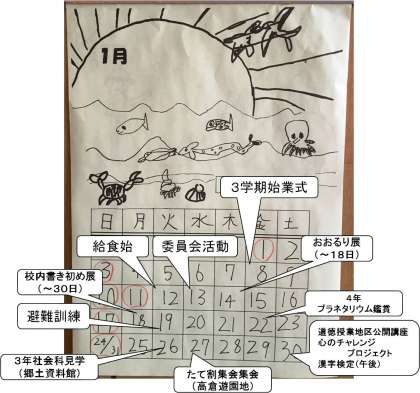 1月
3学期始業式
給食始
委員会活動
日 月 火 水 木 金 土
1 2
おおるり展
(~18日)
3 4 5 6 7 8
校内書き初め展
(~30日)
10 11 12 13 14 15 16
4年
プラネタリウム鑑賞
避難訓練
17 18 19 20 21 22 23
道徳授業地区公開講座
心のチャレンジ
プロジェクト
漢字検定(午後)
24/31 25 26 27 28 29 30
3年社会科見学
(郷土資料館)
たて割集会集会
(高倉遊園地)